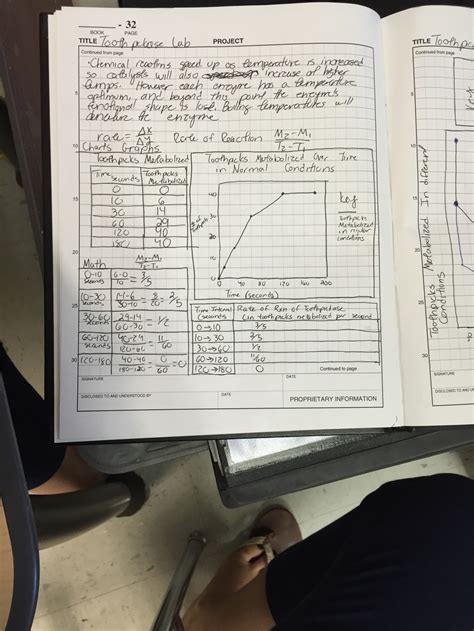 - 32
BOOK PAGE
TITLE Toothpickase Lab PROJECT
Continued from page
Chemical reactions speed up as temperature is increased
so catalysts will also increase at higher
temps. However each enzyme has a temperature
optimum, and beyond this point the enzyme's
functional shape is lost. Boiling temperatures will
denature the enzyme
rate = ΔX/ΔY Rate of Reaction M2-M1/T2-T1
Charts Graphs
Toothpicks Metabolized
Time seconds Toothpicks Metabolized
0 0
10 6
30 14
60 29
120 40
180 40
Toothpicks Metabolized Over Time
in Normal Conditions
40
30
20
10
0 40 80 120 160 200
Time (seconds)
Key
Toothpicks
Metabolized
in regular
conditions
Math M2-M1/T2-T1
0-10 seconds 6-0/10 = 3/5
10-30 seconds 14-6/30-10 = 8/20 = 2/5
30-60 seconds 29-14/60-30 = 1/2
60-120 seconds 40-29/120-60 = 11/60
120-180 40-40/180-120 = 0/60 = 0
Time Interval (seconds) Rate of Rxn of Toothpickase (in toothpicks metabolized per second)
0→10 3/5
10→30 2/5
30→60 1/2
60→120 11/60
120→180 0
Continued to page
SIGNATURE DATE
DISCLOSED TO AND UNDERSTOOD BY DATE PROPRIETARY INFORMATION
BOOK
TITLE
Continued from page
Toothpicks Metabolized In different
Conditions
SIGNATURE
DISCLOSED TO AND